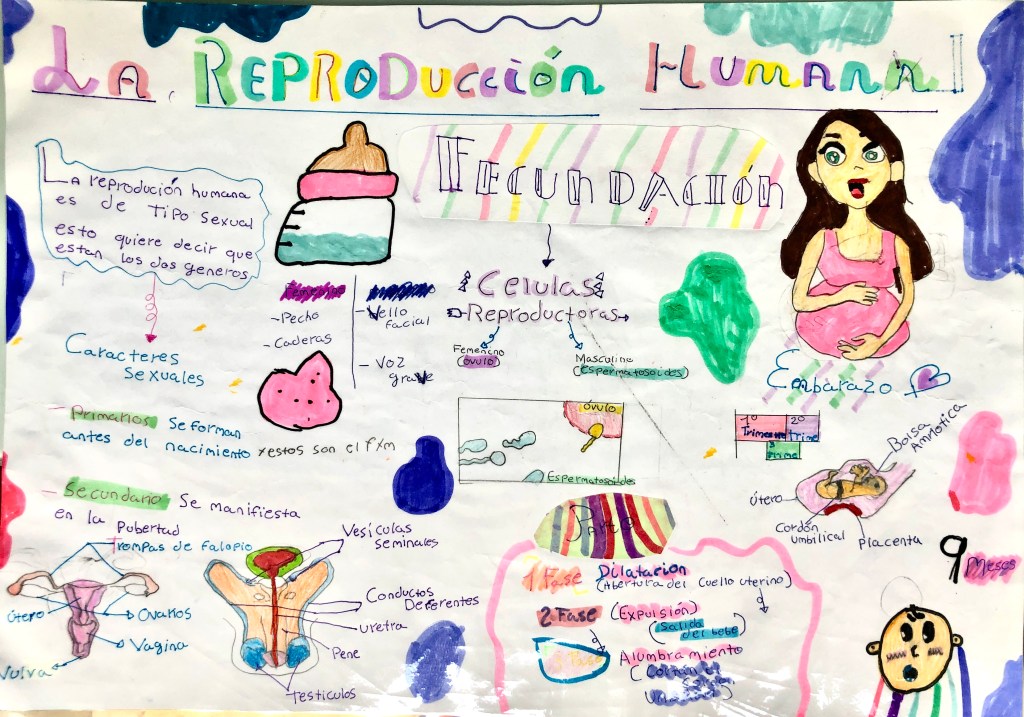 La Reproducción Humana
La reprodución humana
es de Tipo sexual
esto quiere decir que
estan los dos generos
Caracteres
Sexuales
- Primarios Se forman
antes del nacimiento x estos son el f x m
- Secundario Se manifiesta
en la Pubertad
- Pecho
- Caderas
- Vello
facial
- Voz
grave
Fecundación
Celulas
Reproductoras
Femenino
(óvulo)
Masculino
(espermatosoides)
óvulo
Espermatosoides
Embarazo
1º
Trimestre
2º
Trime
3
Trime
Bolsa
Amniotica
útero
Cordón
umbilical
placenta
9
Meses
Trompas de falopio
útero
Ovarios
Vagina
Vulva
Vesículas
seminales
Conductos
Deferentes
uretra
Pene
Testiculos
Parto
1 Fase Dilatacion
(Abertura del Cuello uterino)
2 Fase (Expulsión)
(Salida
del bebe)
Fase Alumbramiento